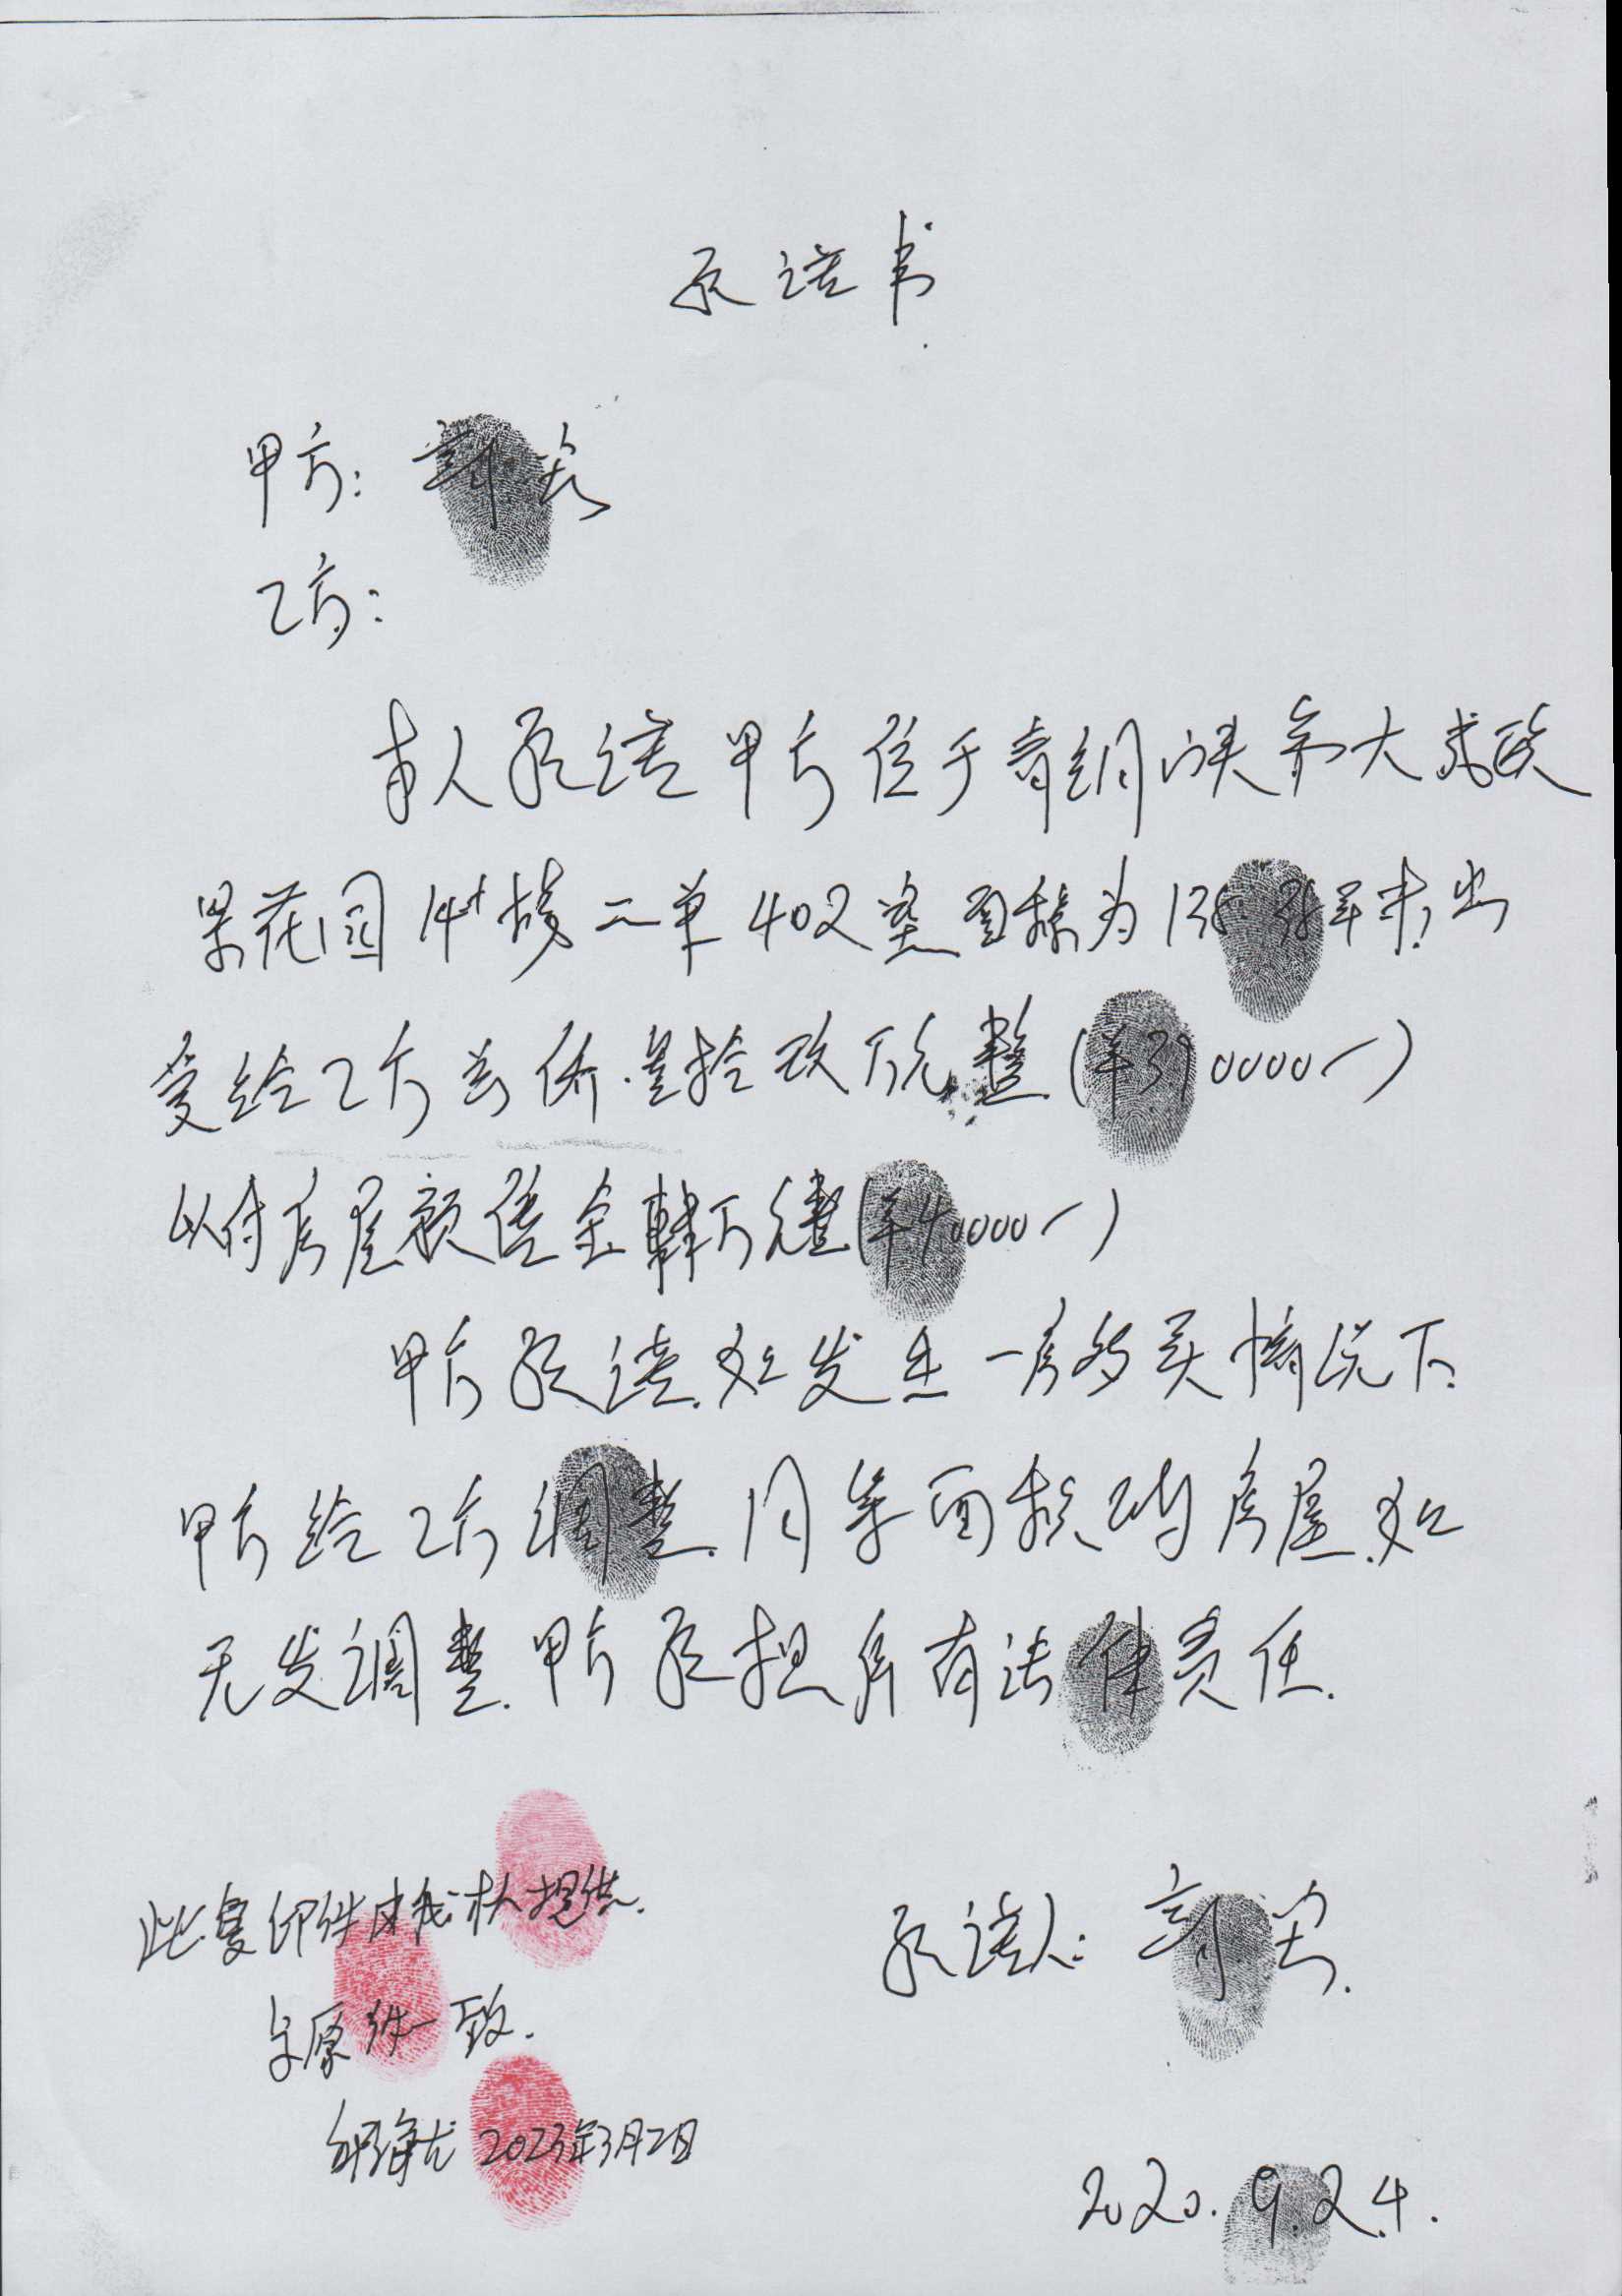 承诺书
甲方:
乙方:
本人承诺甲方位于青铜峡市大成政
果花园14#楼二单402室面积为138.38平米出
变给乙方总价叁拾玖万元整(羊390000一)
以付房屋预售金肆万元整(羊40000一)
甲方承诺.如发生一房多买情况下.
甲方给乙方调整.同等面积的房屋.如
无发调整.甲方承担所有法律责任.
此复印件由我本人提供.
与原件一致.
2023年3月2日
承诺人:
2020.9.24.